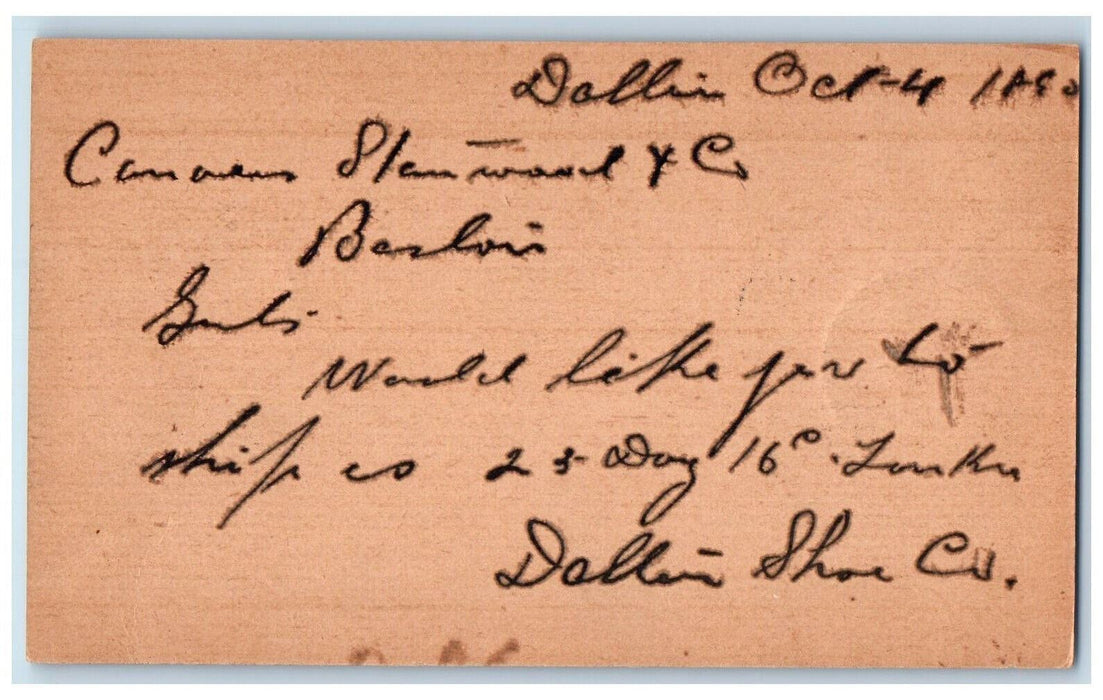 Dallin Oct-4 1890
Stanwood & Co
Boston
Gents
Would like you to
ship us 25 Doz 16c
Dallin Shoe Co.